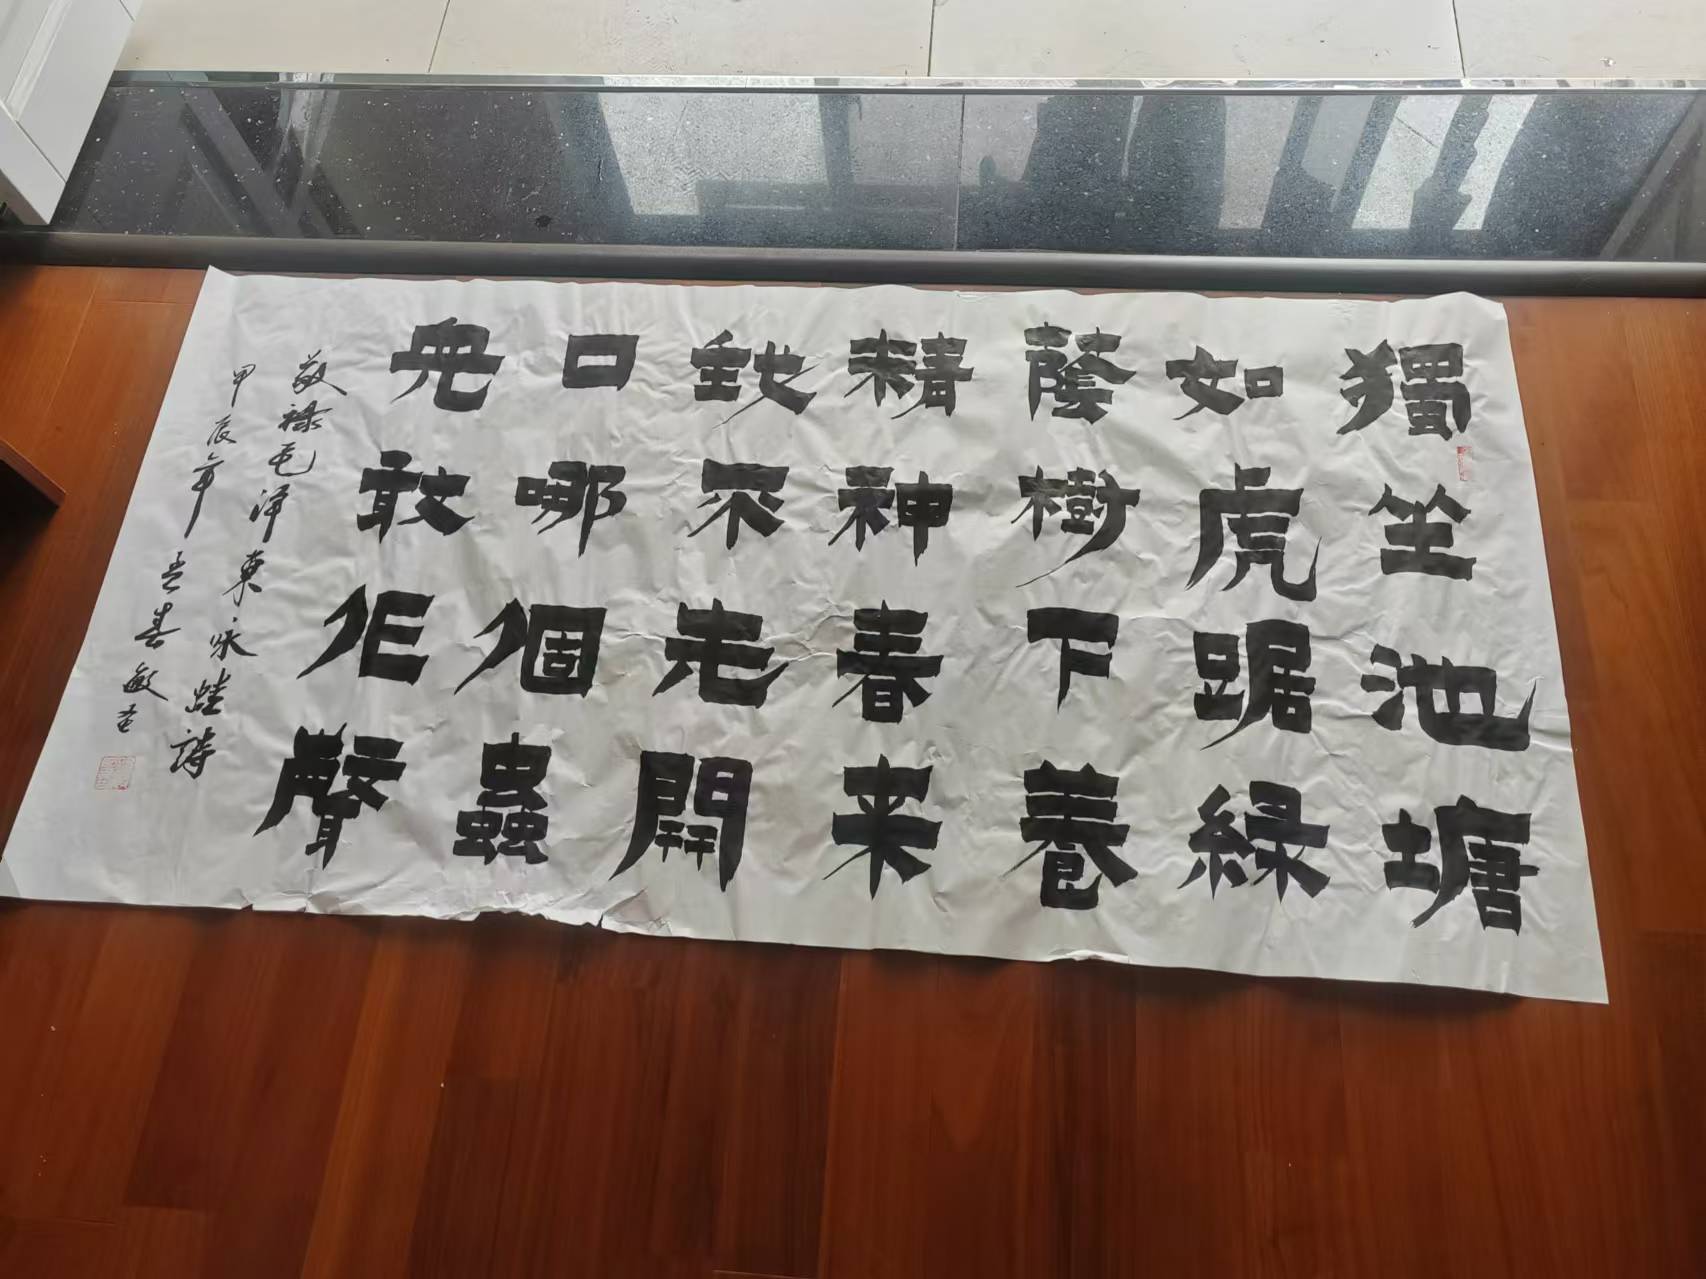 獨坐池塘
如虎踞緑
蔭樹下養
精神春来
我不先開
口哪個蟲
兒敢作聲
敬禄毛泽東咏蛙詩
甲辰年喜敏